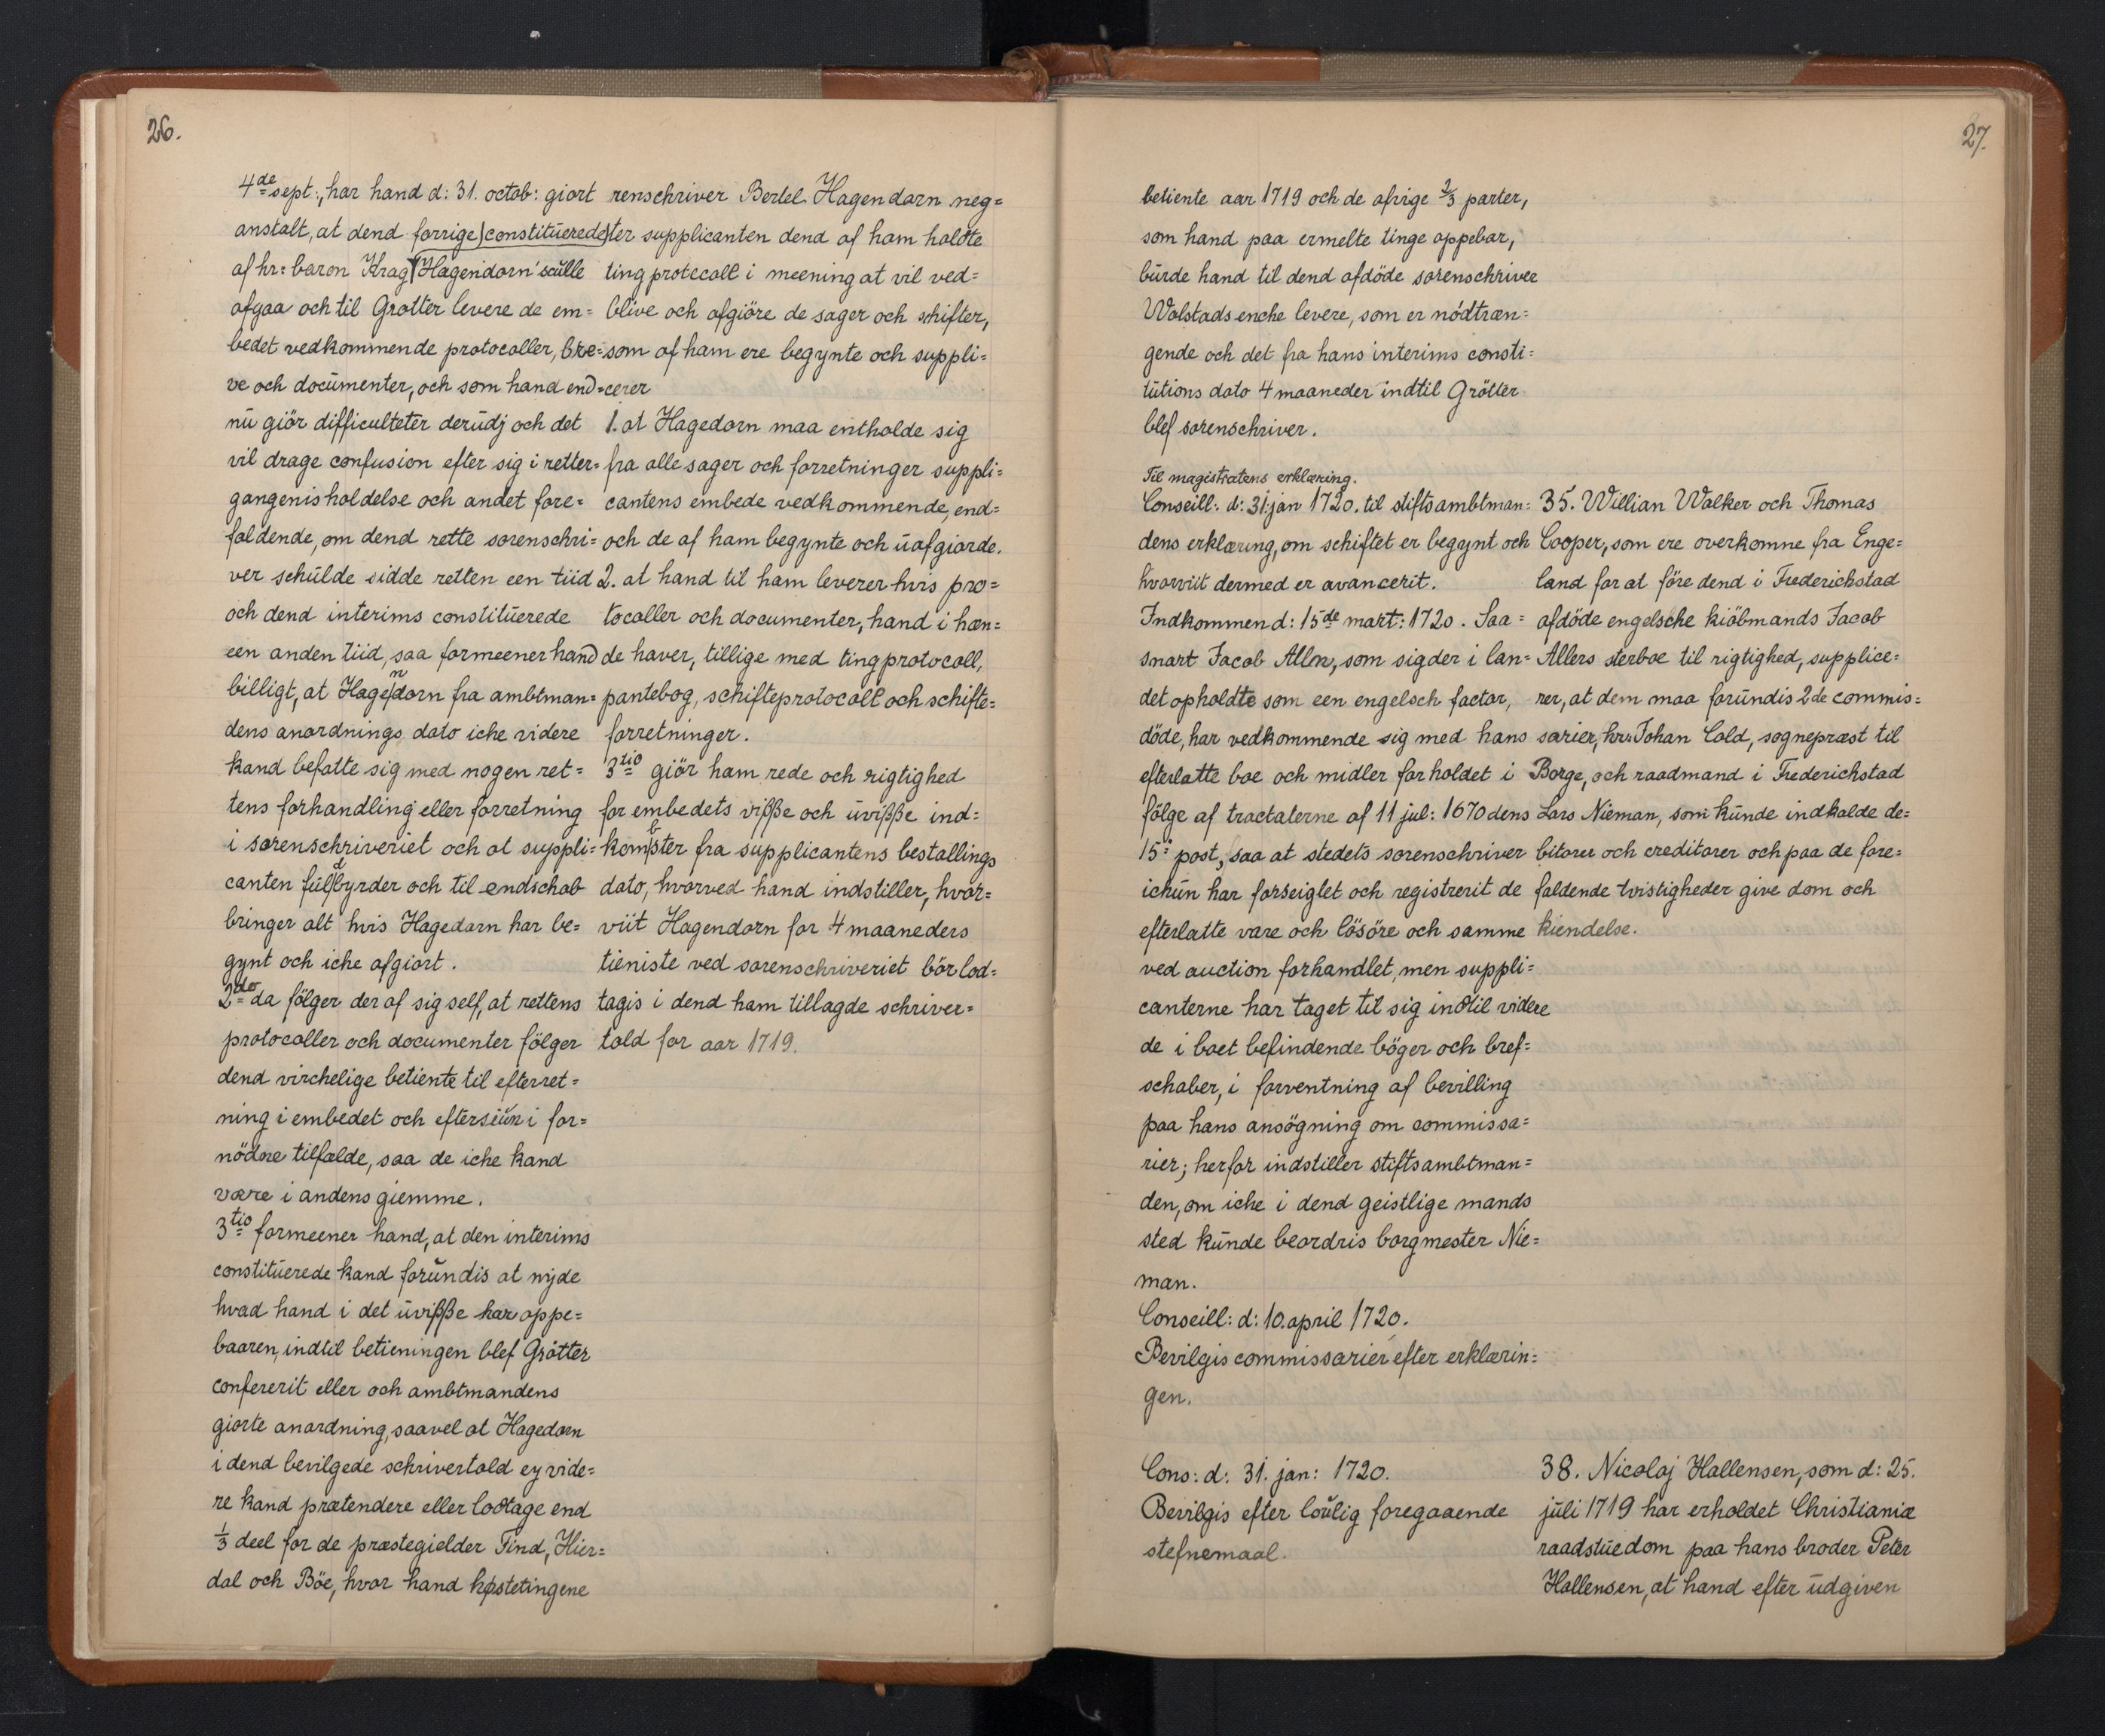 26.
4de sept:, har hand d: 31. octob: giort
anstalt, at dend forrige constituerede
af hr: baron Krag Hagendorn sculle
afgaa och til Grøtter levere de em=
bedet vedkommende protocoller, bre=
ve och documenter, och som hand end=
nu giör difficulteter derudj och det
vil drage confusion efter sig i retter=
gangenis holdelse och andet fore=
faldende, om dend rette sorenschri=
ver schulde sidde retten een tiid
och dend interims constituerede
een anden tiid, saa formeener hand
billigt, at Hagendorn fra ambtman=
dens anordnings dato iche videre
kand befatte sig med nogen ret=
tens forhandling eller forretning
i sorenschriveriet och at suppli=
canten fuldbyrder och til endschab
bringer alt hvis Hagedorn har be=
gynt och iche afgiort.
2do da fölger der af sig self, at rettens
protocoller och documenter fölger
dend virchelige betiente til efterret=
ning i embedet och eftersiun i for=
nödne tilfælde, saa de iche kand
være i andens giemme.
3tio formeener hand, at den interims
constituerede kand forundis at nyde
hvad hand i det uvisse har oppe=
baaren, indtil betieningen blef Grötter
confererit eller och ambtmandens
giorte anordning, saavel at Hagedorn
i dend bevilgede schrivertold ey vide=
re kand prætendere eller lodtage end
1/3 deel for de præstegielder Tind, Hier=
dal och Böe, hvor hand høstetingene
renschriver Bertel Hagendorn neg=
ter supplicanten dend af ham holdte
tingprotecoll i meening at vil ved=
blive och afgiöre de sager och schifter,
som af ham ere begynte och suppli=
cerer
1. at Hagedorn maa entholde sig
fra alle sager och forretninger suppli=
cantens embede vedkommende, end=
och de af ham begynte och uafgiorde.
2. at hand til ham leverer hvis pro=
tocoller och documenter, hand i hæn=
de haver, tillige med tingprotocoll,
pantebog, schifteprotocoll och schifte=
forretninger.
3tio giör ham rede och rigtighed
for embedets visse och uvisse ind=
kombster fra supplicantens bestallings
dato, hvorved hand indstiller, hvor=
viit Hagendorn for 4 maaneders
tieniste ved sorenschriveriet bör lod=
tagis i dend ham tillagde schriver=
told for aar 1719.
27.
betiente aar 1719 och de øfrige 2/3 parter,
som hand paa ermelte tinge oppebar,
burde hand til dend afdöde sorenschriver
Wolstads enche levere, som er nödtræn=
gende och det fra hans interims consti=
tutions dato 4 maaneder indtil Grötter
blef sorenschriver.
Til magistratens erklæring.
Conseill: d: 31. jan 1720. til stiftsambtman=
dens erklæring, om schiftet er begynt och
hvorviit dermed er avancerit.
Indkommen d: 15de mart: 1720. Saa=
snart Jacob Allen, som sig der i lan=
det opholdte som een engelsch factor,
döde, har vedkommende sig med hans
efterlatte boe och midler forholdet i
fölge af tractaterne af 11 jul: 1670 dens
15: post, saa at stedets sorenschriver
ichun har forseiglet och registrerit de
efterlatte vare och lösöre och samme
ved auction forhandlet, men suppli=
canterne har taget til sig indtil videre
de i boet befindende böger och bref=
schaber, i forventning af bevilling
paa hans ansögning om commissa=
rier; herfor indstiller stiftsambtman=
den, om iche i dend geistlige mands
sted kunde beordris borgmester Nie=
man.
Conseill: d: 10. april 1720.
Bevilgis commissarier efter erklærin=
gen.
35. Willian Walker och Thomas
Cooper, som ere overkomne fra Enge=
land for at före dend i Frederichstad
afdöde engelsche kiöbmands Jacob
Allers sterboe til rigtighed, supplice=
rer, at dem maa forundis 2de commis=
sarier, hr: Johan Cold, sognepræst til
Borge, och raadmand i Frederichstad
Lars Nieman, som kunde indkalde de=
bitorer och creditorer och paa de fore=
faldende tvistigheder give dom och
kiendelse.
Cons: d: 31. jan: 1720.
Bevilgis efter loulig foregaaende
stefnemaal.
38. Nicolaj Hallensen, som d: 25.
juli 1719 har erholdet Christianiæ
raadstuedom paa hans broder Peter
Hallensen, at hand efter udgiven